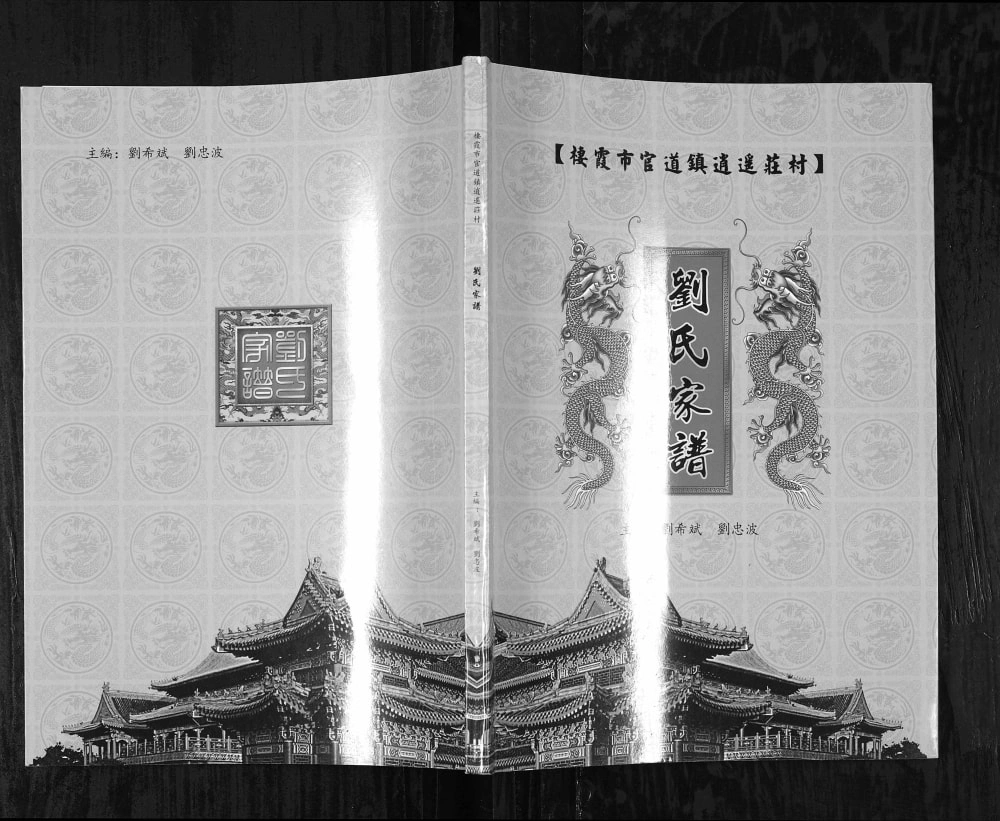 主編：劉希斌　劉忠波
劉氏
家譜
棲霞市官道鎮逍遥莊村
劉氏家譜
主編：劉希斌　劉忠波
【棲霞市官道鎮逍遥莊村】
劉氏家譜
主　劉希斌　劉忠波